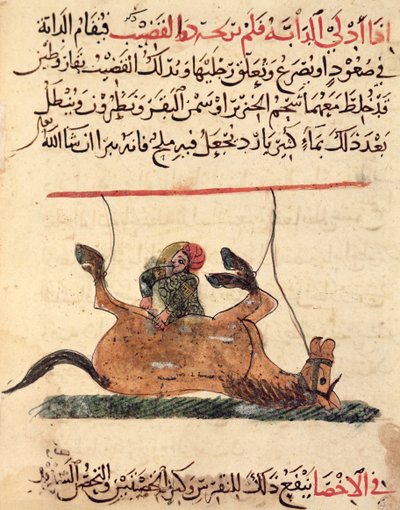 اذا أدلى الدابه فلم القضيب فيقام الدابة
في صعود او يصرع وتعلق رجليها ويدلك القضيب بقار وطين
قد خلط معهما شحم الخنزير او سمن البقر ونطرون وينطل
بعد ذلك بماء كثير بارد يجعل فيه ملح فانه يبرا ان شا الله تعالى
في الاخصا ينفع ذلك للنقرس وكبر الخصيتين